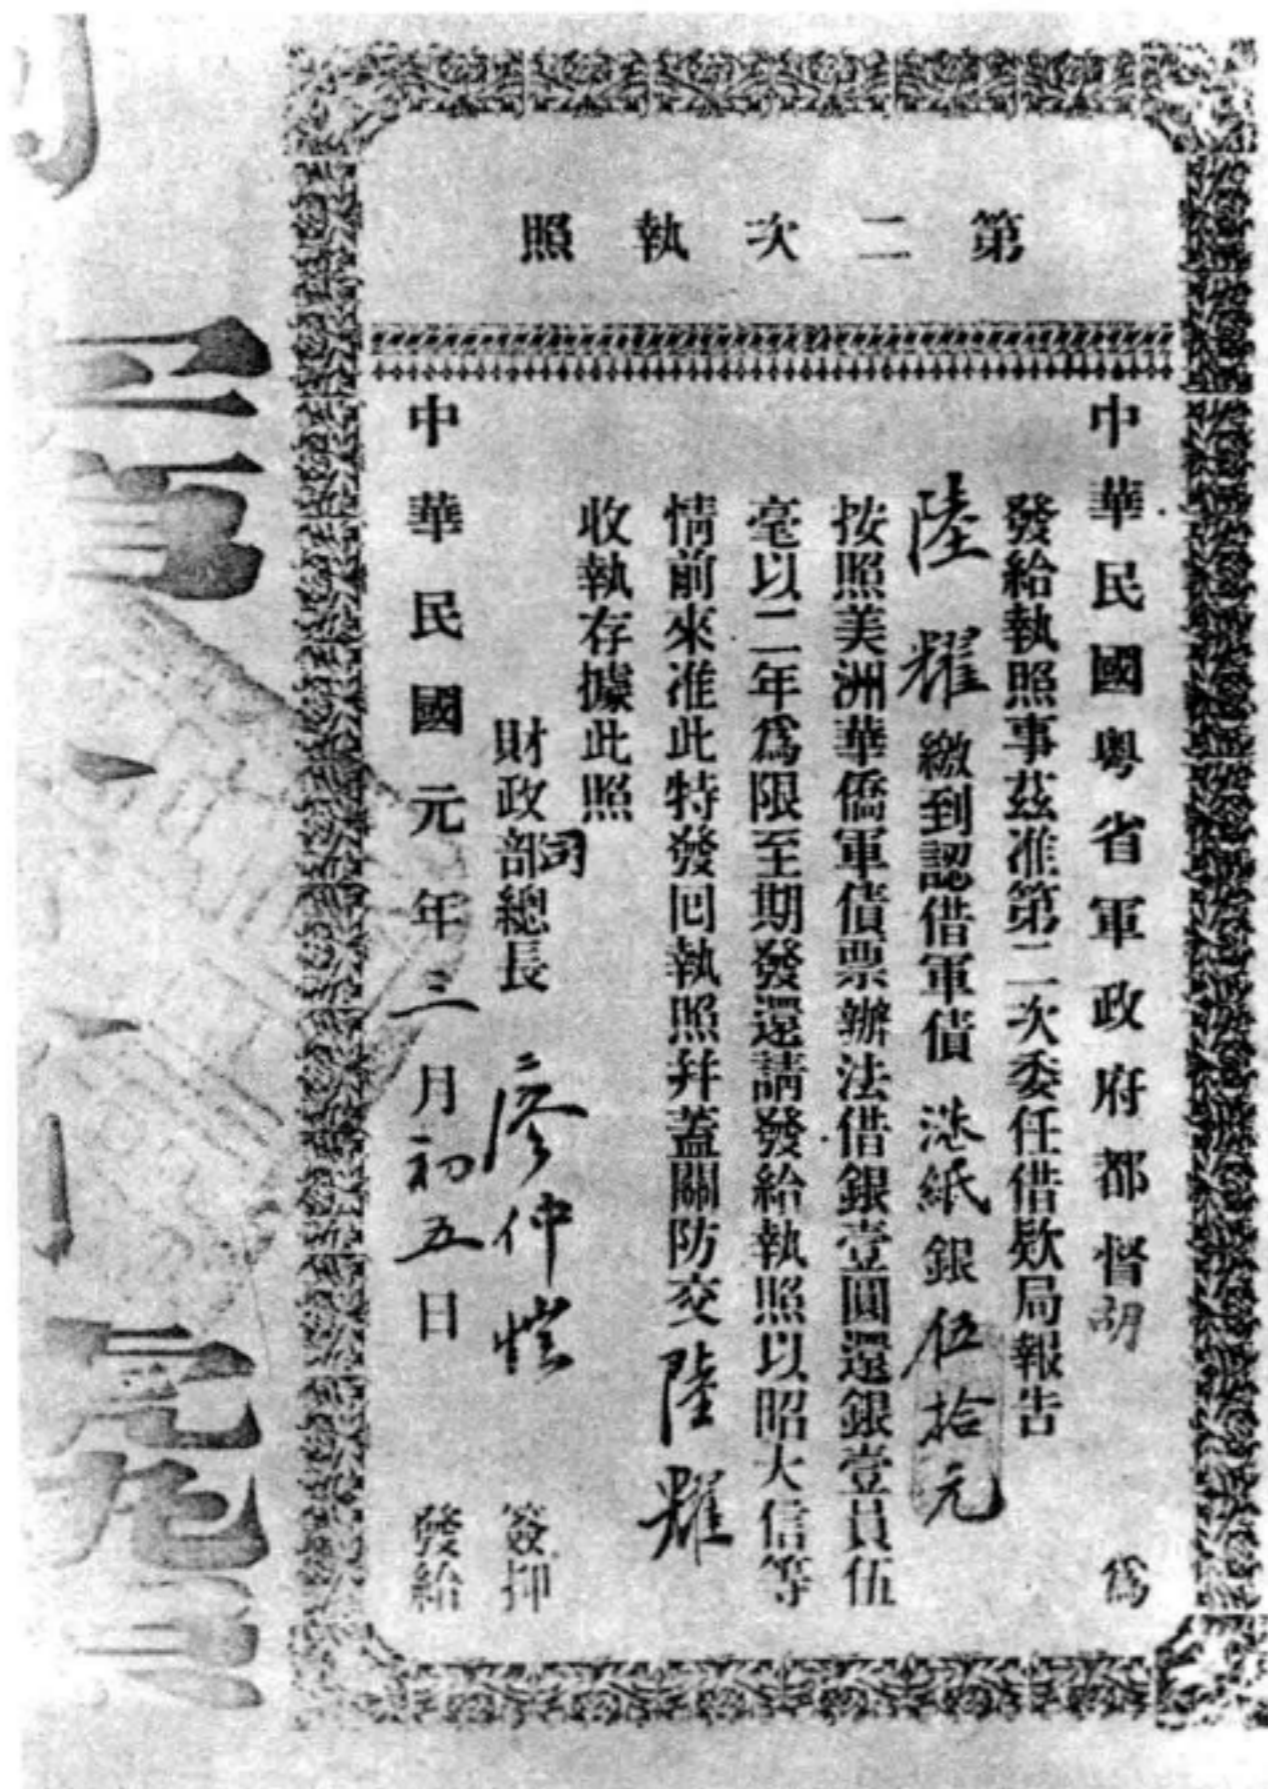 第二次執照
中華民國粵省軍政府都督胡 爲
發給執照事茲准第二次委任借欵局報告
陸耀繳到認借軍債港紙銀伍拾元
按照美洲華僑軍債票辦法借銀壹圓還銀壹員伍
毫以二年爲限至期發還請發給執照以昭大信等
情前來准此特發回執照幷蓋關防交陸耀
收執存據此照
財政部司總長 廖仲愷 簽押
中華民國元年三月初五日 發給